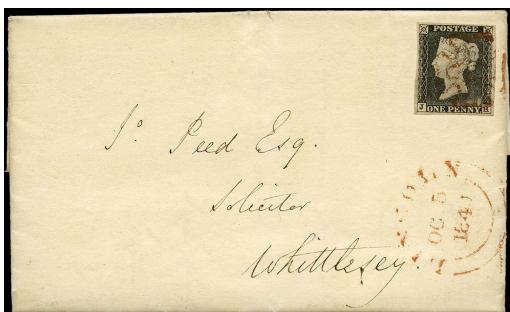 POSTAGE
J ONE PENNY H
Jº Peed Esq.
Solicitor
Whittlesey.
LINCOLN
OC 5
1840